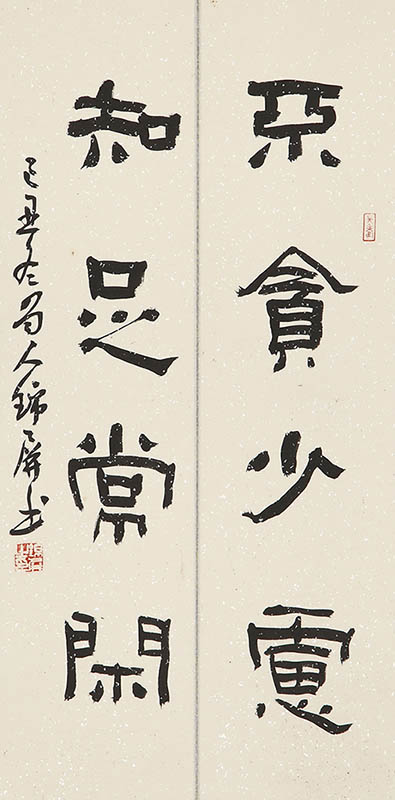 不貪少慮
知足常閑
己丑冬蜀人錦屏书